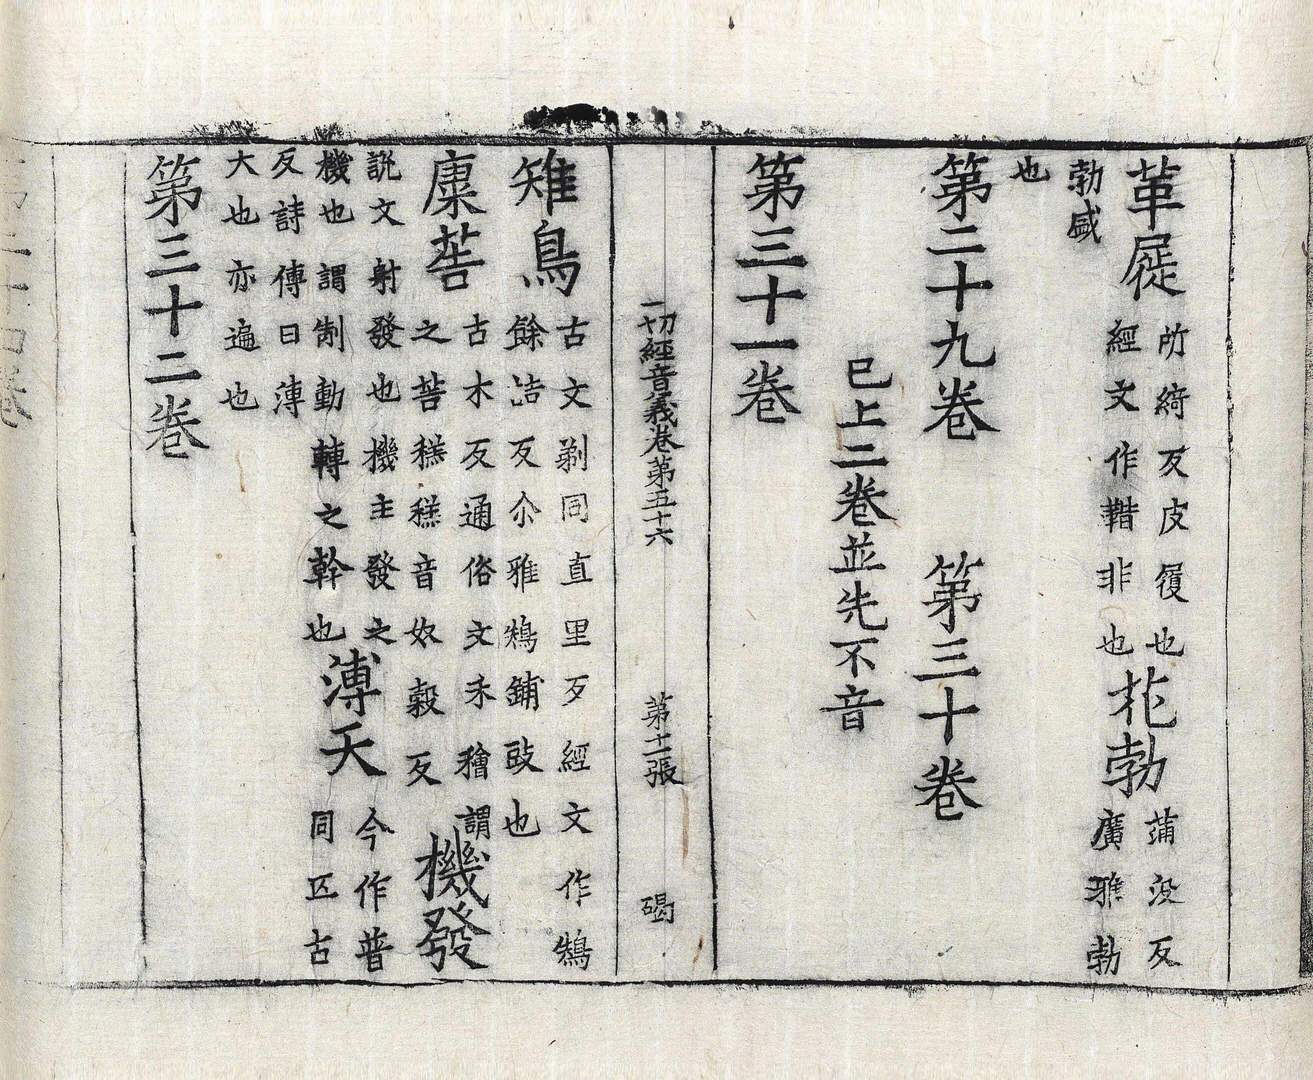 革屣
所綺反皮履也
經文作鞜非也
花勃
蒲没反
廣雅勃
勃盛
也
第二十九卷　第三十卷
已上二卷並先不音
第三十一卷
一切經音義卷第五十六　第十二張　碣
雉鳥
古文剃同直里反經文作鵄
餘　反尒雅鵄鋪豉也
古木反通俗文禾穭謂
之　音奴穀反
機發
說文射發也機主發之
機也謂制動轉之幹也
溥天
今作普
同匹古
反詩傳曰溥
大也亦遍也
第三十二卷